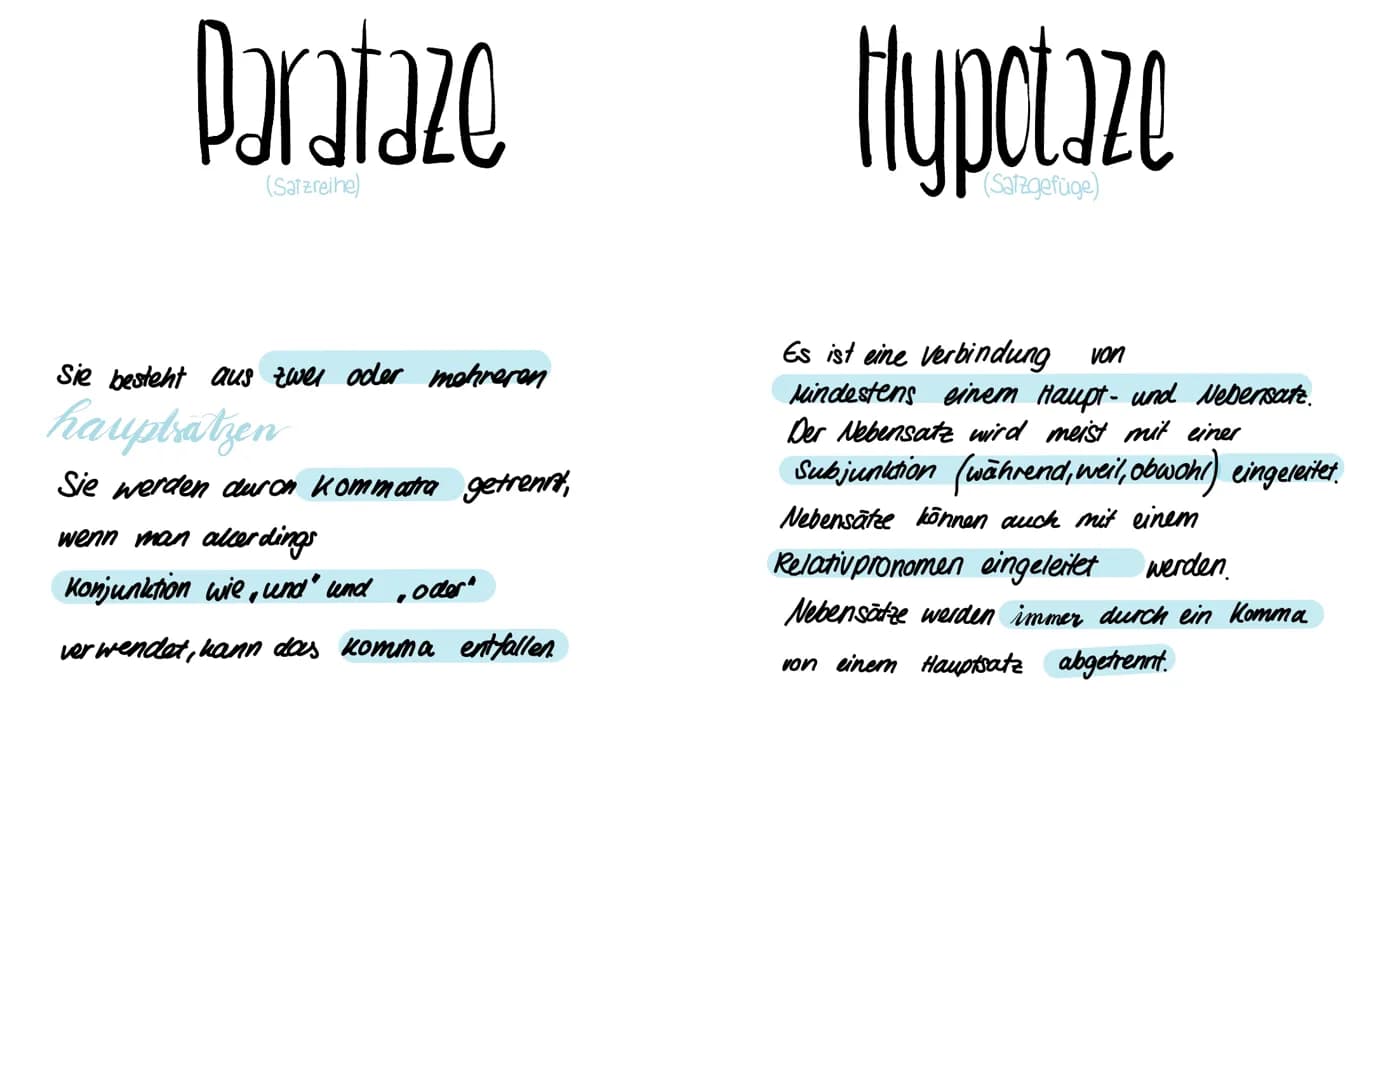 Parataze
(Satzreihe)
Sie besteht aus zwei oder mehreren
hauptsätzen
Sie werden durch Kommata getrennt,
wenn man allerdings
Konjunktion wie „und" und „oder"
verwendet, kann das Komma entfallen.
Hypotaze
(Satzgefüge)
Es ist eine Verbindung von
Mindestens einem Haupt- und Nebensatz.
Der Nebensatz wird meist mit einer
Subjunktion (während, weil, obwohl) eingeleitet.
Nebensätze können auch mit einem
Relativpronomen eingeleitet werden.
Nebensätze werden immer durch ein Komma
von einem Hauptsatz abgetrennt.